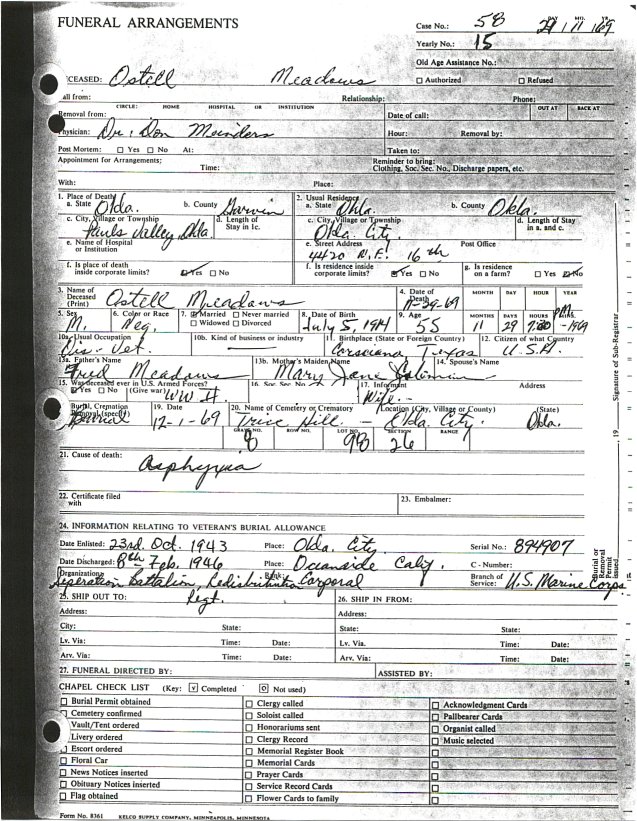 FUNERAL ARRANGEMENTS
Case No.: 58 29 11 69
DAY MO. YR.
Yearly No.: 15
Old Age Assistance No.:
CEASED: Ostell Meadows
☐ Authorized ☐ Refused
all from: Relationship: Phone:
CIRCLE: HOME HOSPITAL OR INSTITUTION OUT AT BACK AT
Removal from: Date of call:
Physician: Dr. Don Meinders Hour: Removal by:
Post Mortem: ☐ Yes ☐ No At: Taken to:
Appointment for Arrangements: Reminder to bring:
Time: Clothing, Soc. Sec. No., Discharge papers, etc.
With: Place:
1. Place of Death 2. Usual Residence
a. State Okla. b. County Garvin a. State Okla. b. County Okla.
c. City, Village or Township d. Length of Stay in 1c. c. City, Village or Township d. Length of Stay in a. and c.
Pauls Valley, Okla Okla. City
e. Name of Hospital or Institution e. Street Address Post Office
4420 N.E. 16th
f. Is place of death inside corporate limits? ☑ Yes ☐ No f. Is residence inside corporate limits? ☑ Yes ☐ No g. Is residence on a farm? ☐ Yes ☑ No
3. Name of Deceased (Print) Ostell Meadows 4. Date of Death 11-29-69 MONTH DAY HOUR YEAR
5. Sex 6. Color or Race 7. ☑ Married ☐ Never married 8. Date of Birth 9. Age MONTHS DAYS HOURS MINS.
☐ Widowed ☐ Divorced
M. Neg. July 5, 1914 55 11 29 7:30 PM 1969
10a. Usual Occupation 10b. Kind of business or industry 11. Birthplace (State or Foreign Country) 12. Citizen of what Country
Dis. Vet. Corsicana Texas U.S.A.
13a. Father's Name 13b. Mother's Maiden Name 14. Spouse's Name
Fred Meadows Mary Jane Coleman
15. Was deceased ever in U.S. Armed Forces? 16. Soc. Sec. No. 17. Informant Address
☑ Yes ☐ No (Give war) WW II Wife -
Burial, Cremation Removal (specify) 19. Date 20. Name of Cemetery or Crematory Location (City, Village or County) (State)
Burial 12-1-69 Trice Hill - Okla. City. Okla.
GRAVE NO. ROW NO. LOT NO. SECTION RANGE
8 98 26
21. Cause of death:
Asphyxia
22. Certificate filed with 23. Embalmer:
24. INFORMATION RELATING TO VETERAN'S BURIAL ALLOWANCE
Date Enlisted: 23rd Oct. 1943 Place: Okla. City Serial No.: 894907
Date Discharged: 8th Feb. 1946 Place: Oceanside Calif. C - Number:
Organization: Seperation Battalion, Redistribution Regt. Rank: Corporal Branch of Service: U.S. Marine Corps
25. SHIP OUT TO: 26. SHIP IN FROM:
Address: Address:
City: State: State: State:
Lv. Via: Time: Date: Lv. Via. Time: Date:
Arv. Via: Time: Date: Arv. Via: Time: Date:
27. FUNERAL DIRECTED BY: ASSISTED BY:
CHAPEL CHECK LIST (Key: ☑ Completed ☐ Not used)
☐ Burial Permit obtained ☐ Clergy called ☐ Acknowledgment Cards
☐ Cemetery confirmed ☐ Soloist called ☐ Pallbearer Cards
Vault/Tent ordered ☐ Honorariums sent ☐ Organist called
☐ Livery ordered ☐ Clergy Record ☐ Music selected
☐ Escort ordered ☐ Memorial Register Book ☐
☐ Floral Car ☐ Memorial Cards ☐
☐ News Notices inserted ☐ Prayer Cards ☐
☐ Obituary Notices inserted ☐ Service Record Cards ☐
☐ Flag obtained ☐ Flower Cards to family ☐
Form No. 8361 KELCO SUPPLY COMPANY, MINNEAPOLIS, MINNESOTA
Burial or Removal Permit issued 19 Signature of Sub-Registrar